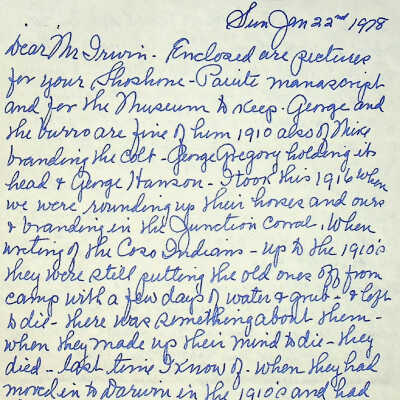 Sun Jan 22nd 1978
Dear Mr Irwin - Enclosed are pictures
for your Shoshone - Paiute manascript
and for the Museum to keep. George and
the burro are fine of him 1910 also of Mike
branding the colt - George Gregory holding its
head & George Hanson - I took this 1916 when
we were rounding up their horses and ours
& branding in the Junction corral. When
writing of the Coso Indians - up to the 1910's
they were still putting the old ones off from
camp with a few days of water & grub - & left
to die - there was something about them -
when they made up their mind to die - they
died - last time I know of. when they had
moved in to Darwin in the 1910's and had